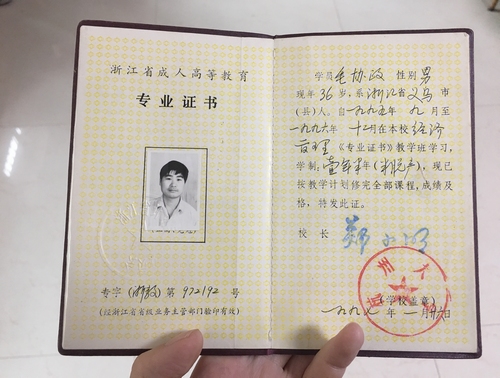 浙江省成人高等教育
专业证书
专字(浙教)第972192号
(经浙江省省级业务主管部门验印有效)
学员毛协政 性别男
现年36岁,系浙江省义乌市
(县)人。自一九九五年九月至
一九九六年十二月在本校经济
管理《专业证书》教学班学习,
学制:壹年半年(半脱产),现已
按教学计划修完全部课程,成绩及
格,特发此证。
校长
(学校盖章)
一九九七年一月